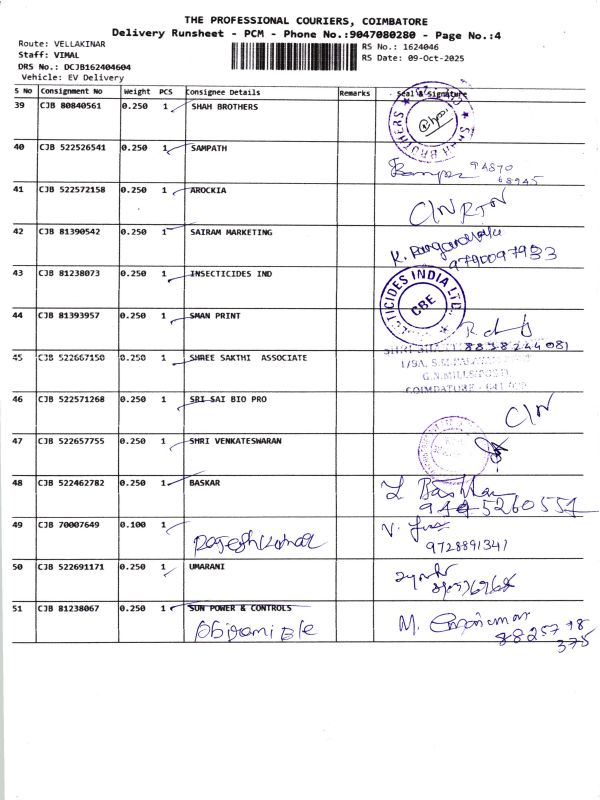 THE PROFESSIONAL COURIERS, COIMBATORE
Delivery Runsheet - PCM - Phone No.:9047080280 - Page No.:4
Route: VELLAKINAR
RS No.: 1624046
Staff: VIMAL
RS Date: 09-Oct-2025
DRS No.: DCJB162404604
Vehicle: EV Delivery
S No Consignment No Weight PCS Consignee Details Remarks Seal & Signature
39 CJB 80840561 0.250 1 SHAH BROTHERS
SHAH BROTHERS
40 CJB 522526541 0.250 1 SAMPATH
94870
68945
41 CJB 522572158 0.250 1 AROCKIA C/N RTN
42 CJB 81390542 0.250 1 SAIRAM MARKETING
9790097933
43 CJB 81238073 0.250 1 INSECTICIDES IND
INSECTICIDES INDIA LTD
CBE
44 CJB 81393957 0.250 1 SMAN PRINT
8878244081
45 CJB 522667150 0.250 1 SHREE SAKTHI ASSOCIATE
1/9A, S.M.
COIMBATORE - 641
46 CJB 522571268 0.250 1 SRI SAI BIO PRO C/N
47 CJB 522657755 0.250 1 SHRI VENKATESWARAN
48 CJB 522462782 0.250 1 BASKAR
49 CJB 70007649 0.100 1
Rageshkumar
9728891341
50 CJB 522691171 0.250 1 UMARANI
51 CJB 81238067 0.250 1 SUN POWER & CONTROLS
M.
8825718
375